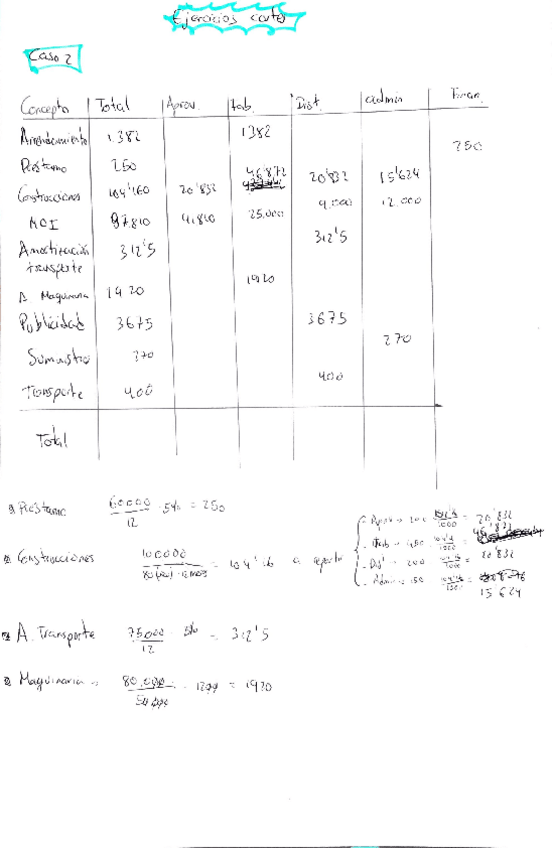 Ejercicios cortos
Caso 2
Concepto Total Aprov. Fab. Dist. admin Finan.
Arrendamiento 1.382 1382
Préstamo 250 250
Construcciones 104'160 20'832 46'872 20'832 15'624
MOI 87.810 41.810 25.000 9.000 12.000
Amortización 312'5 312'5
transporte
A Maquinaria 1920 1920
Publicidad 3675 3675
Suministro 270 270
Transporte 400 400
Total
Préstamo 60000/12 · 5% = 250
Construcciones 100000/80 = 104'16 a repartir
Aprov → 200 · 104'16/1000 = 20'832
Fab → 450 · 104'16/1000 = 46'872
Dist → 200 · 104'16/1000 = 20'832
Admin → 150 · 104'16/1000 = 15'624
A. Transporte 75000/12 · 5% = 312'5
Maquinaria = 80.000/50.000 · 1200 = 1920